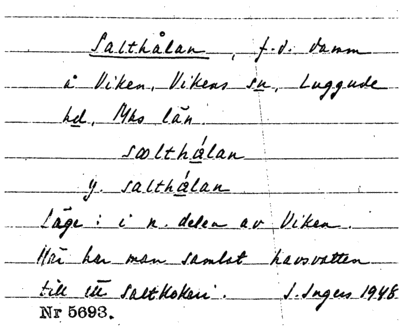 Salthålan, f.d. damm
å Viken, Vikens sn, Luggude
hd, Mhs län.
sœlthálan
y. salthálan
Läge: i n. delen av Viken.
Här har man samlat havsvatten
till ett saltkokeri. S. Ingers 1948
Nr 5693.